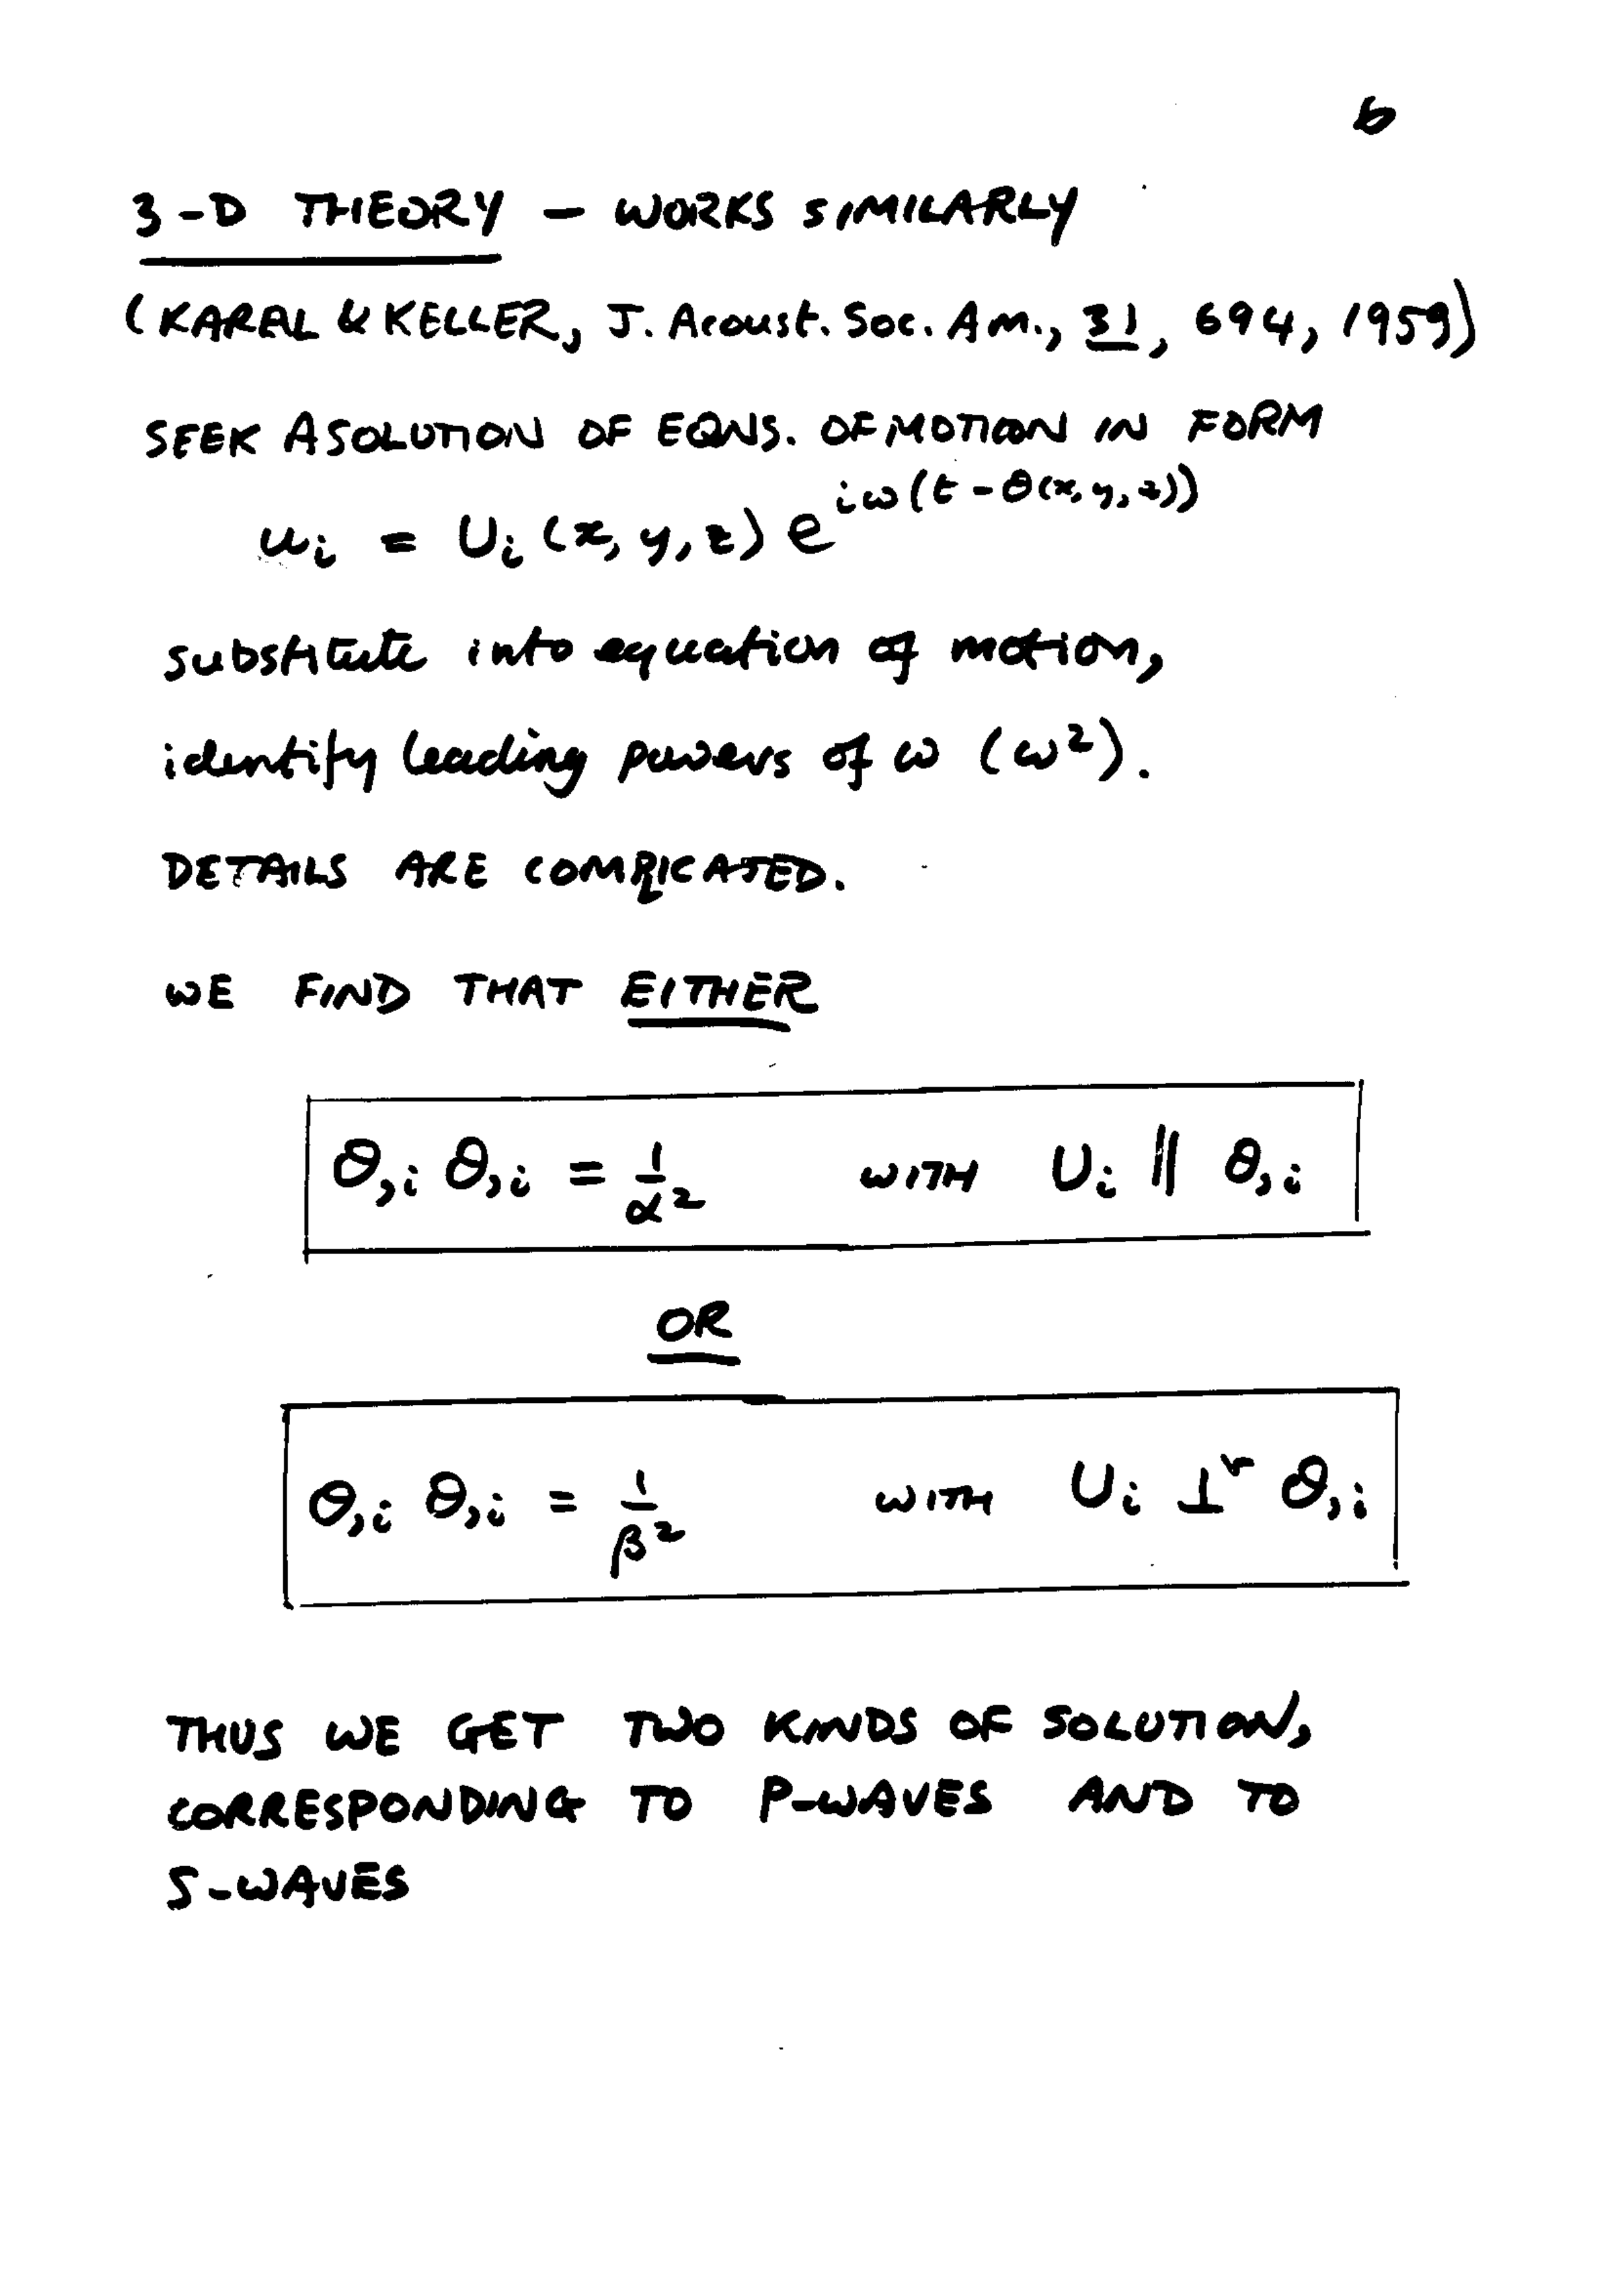 6
3-D THEORY — WORKS SIMILARLY
(KARAL & KELLER, J. Acoust. Soc. Am., 31, 694, 1959)
SEEK A SOLUTION OF EQNS. OF MOTION IN FORM
u_i = U_i (x, y, z) e^{iω(t - θ(x, y, z))}
substitute into equation of motion,
identify leading powers of ω (ω²).
DETAILS ARE COMPLICATED.
WE FIND THAT EITHER
θ,i θ,i = 1/α² WITH U_i ∥ θ,i
OR
θ,i θ,i = 1/β² WITH U_i ⊥ʳ θ,i
THUS WE GET TWO KINDS OF SOLUTION,
CORRESPONDING TO P-WAVES AND TO
S-WAVES